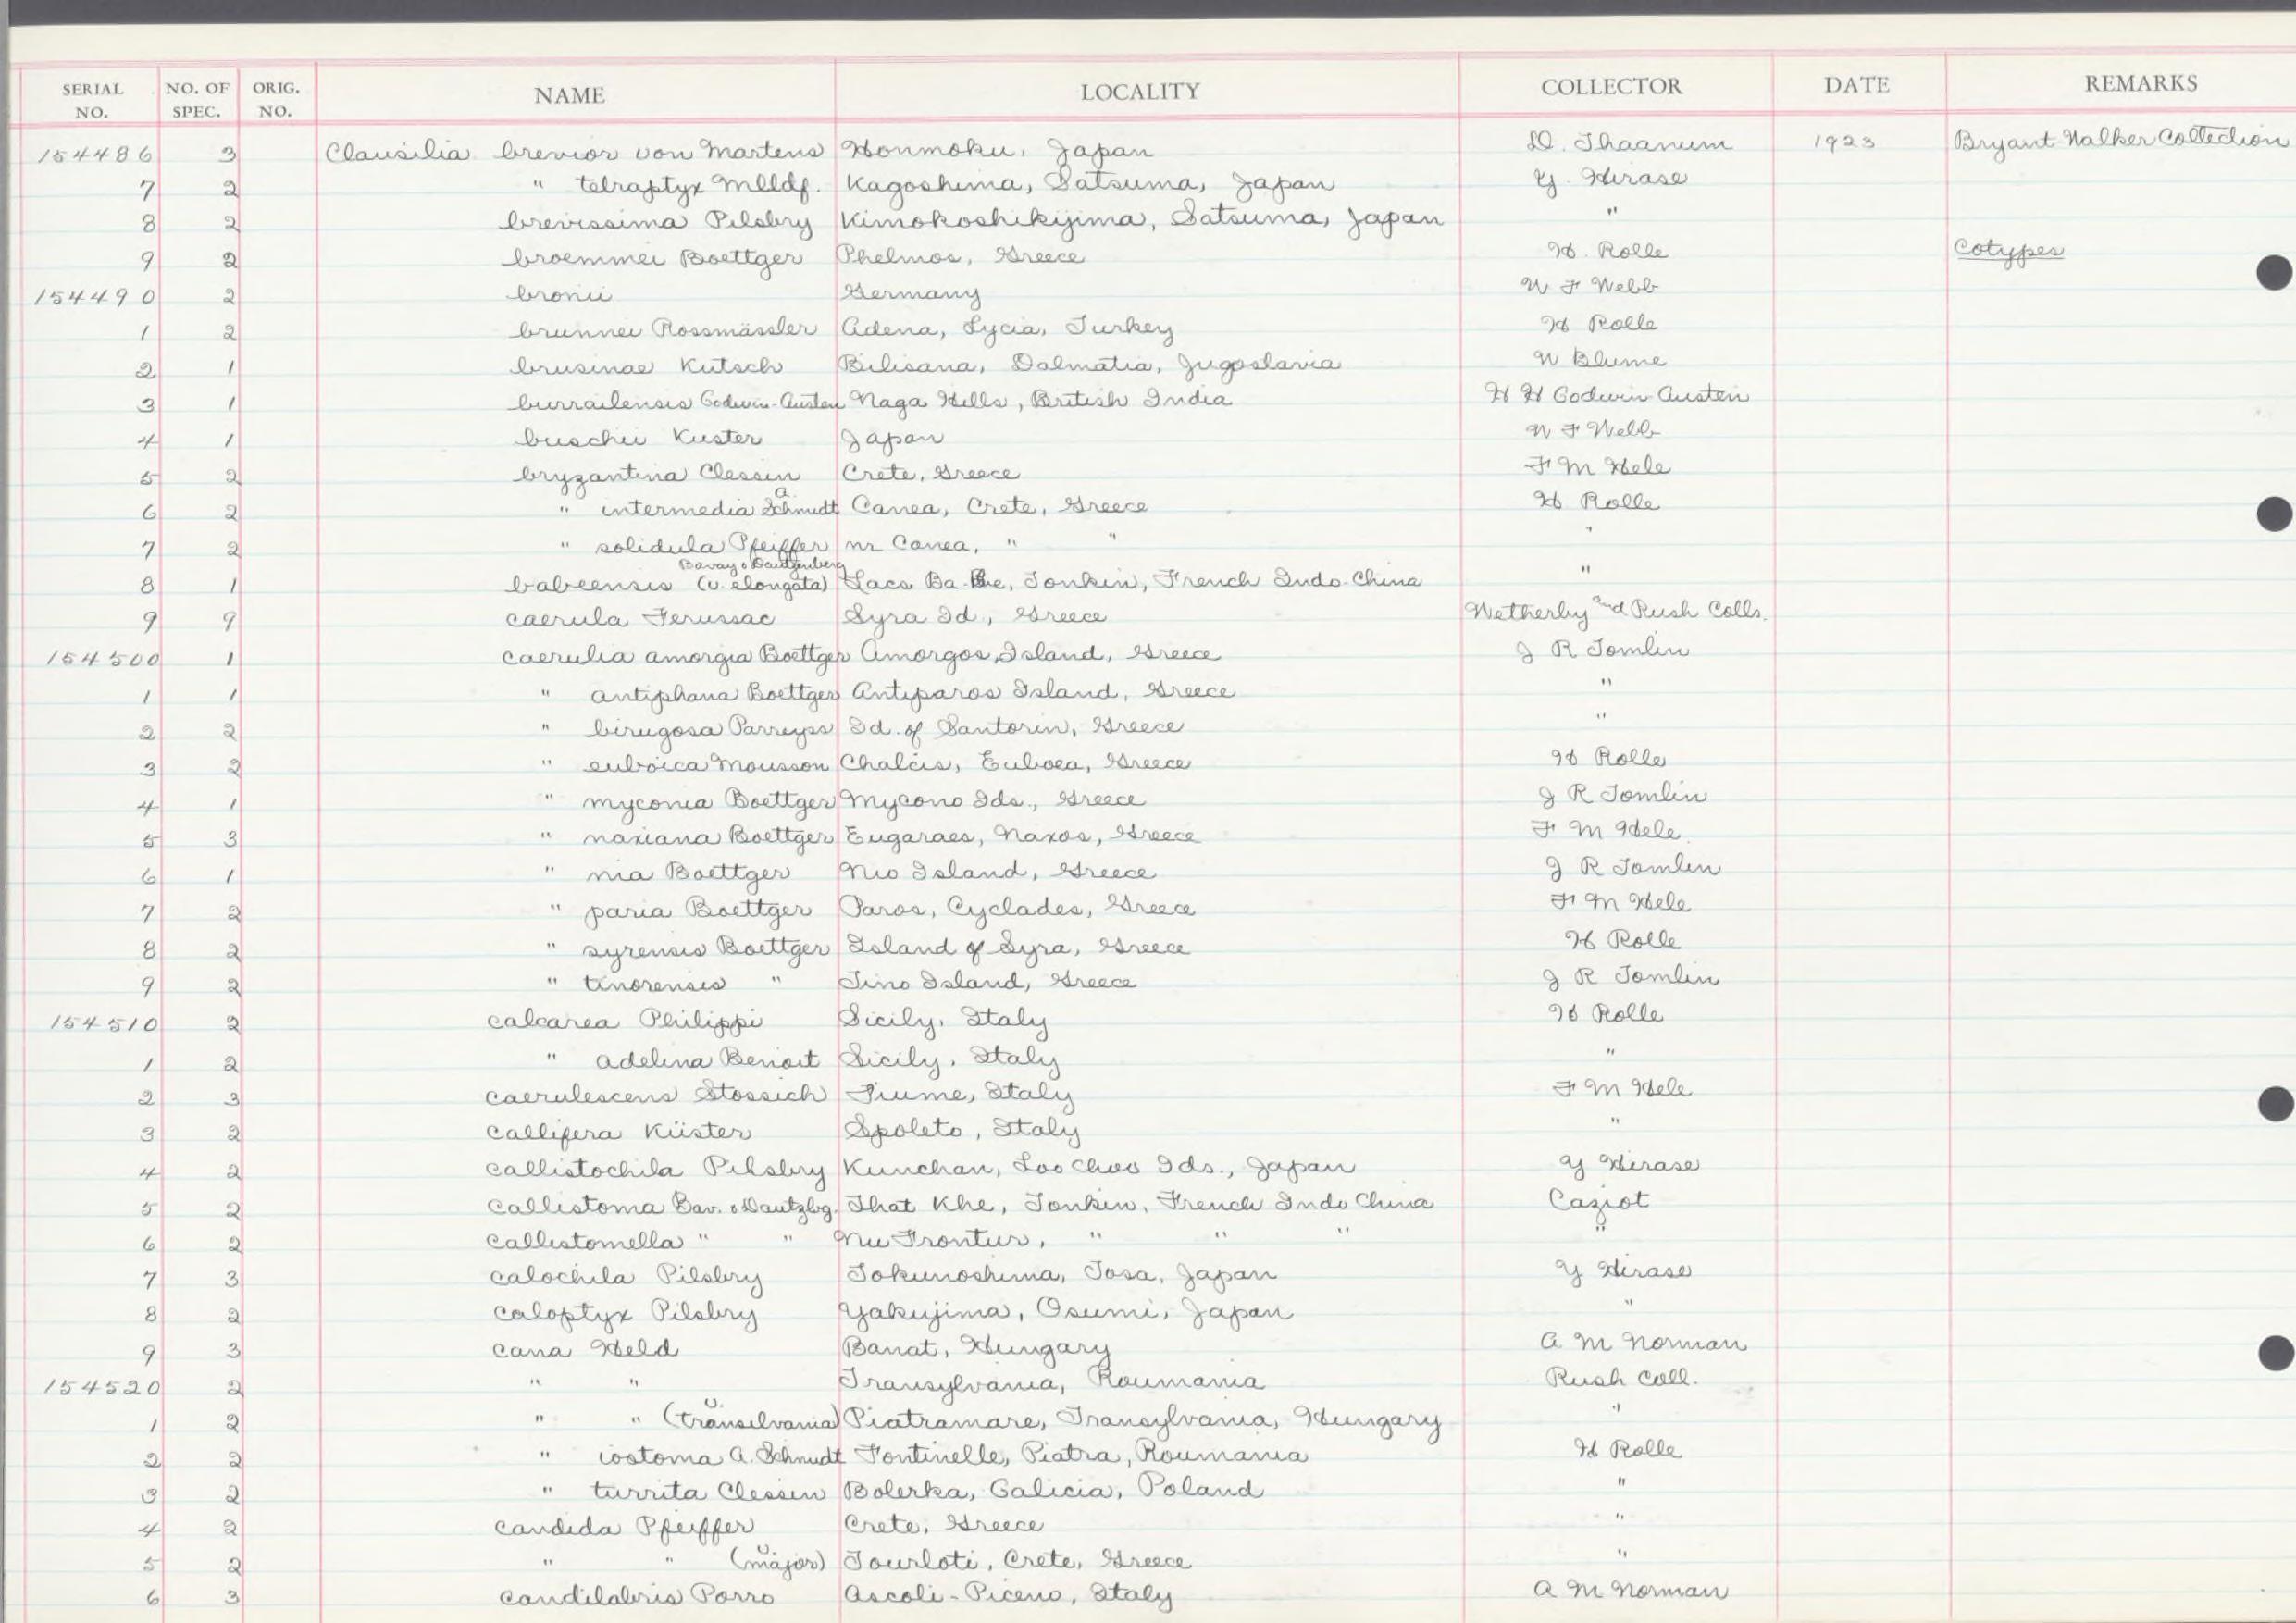 SERIAL NO. NO. OF SPEC. ORIG. NO. NAME LOCALITY COLLECTOR DATE REMARKS
154486 3 Clausilia brevior von Martens Honmoku, Japan D. Thaanum 1923 Bryant Walker Collection
7 2 " tetraptyx Mlldf. Kagoshima, Satsuma, Japan Y. Hirase
8 2 brevissima Pilsbry Kimokoshikijima, Satsuma, Japan "
9 2 broemmei Boettger Phelmos, Greece H. Rolle Cotypes
154490 2 bronii Germany W F Webb
1 2 brunnei Rossmässler Adena, Lycia, Turkey H Rolle
2 1 brusinae Kutsch Bilisana, Dalmatia, Jugoslavia W Blume
3 1 burrailensis Godwin-Austen Naga Hills, British India H H Godwin-Austen
4 1 buschii Kuster Japan W F Webb
5 2 bryzantina Clessin Crete, Greece F M Hele
6 2 " intermedia A Schmidt Canea, Crete, Greece H Rolle
7 2 " solidula Pfeiffer nr Canea, " " "
8 1 babeensis Bavay & Dautzenberg (v. elongata) Lacs Ba-Be, Tonkin, French Indo-China "
9 9 caerula Ferussac Syra Id., Greece Wetherby and Rush Colls.
154500 1 caerulia amorgia Boettger Amorgos, Island, Greece J R Tomlin
1 1 " antiphana Boettger Antiparos Island, Greece "
2 2 " birugosa Parreyss Id. of Santorin, Greece "
3 2 " euboica Mousson Chalcis, Euboea, Greece H Rolle
4 1 " myconia Boettger Mycono Ids., Greece J R Tomlin
5 3 " naxiana Boettger Eugaraes, Naxos, Greece F M Hele
6 1 " nia Boettger Nio Island, Greece J R Tomlin
7 2 " paria Boettger Paros, Cyclades, Greece F M Hele
8 2 " syrensis Boettger Island of Syra, Greece H Rolle
9 2 " tinorensis " Tino Island, Greece J R Tomlin
154510 2 calcarea Philippi Sicily, Italy H Rolle
1 2 " adelina Benoit Sicily, Italy "
2 3 caerulescens Stossich Fiume, Italy F M Hele
3 2 callifera Küster Spoleto, Italy "
4 2 callistochila Pilsbry Kunchan, Loo Choo Ids., Japan Y Hirase
5 2 callistoma Bav. & Dautzbg. That Khe, Tonkin, French Indo China Caziot
6 2 callistomella " " Nu Frontur, " " " "
7 3 calochila Pilsbry Tokunoshima, Tosa, Japan Y Hirase
8 2 caloptyx Pilsbry Yakujima, Osumi, Japan "
9 3 cana Held Banat, Hungary A M Norman
154520 2 " " Transylvania, Roumania Rush Coll.
1 2 " " (transilvania) Piatramare, Transylvania, Hungary "
2 2 " iostoma A. Schmidt Fontinelle, Piatra, Roumania H Rolle
3 2 " turrita Clessin Bolerka, Galicia, Poland "
4 2 candida Pfeiffer Crete, Greece "
5 2 " " (major) Tourloti, Crete, Greece "
6 3 candilabris Porro Ascoli-Piceno, Italy A M Norman